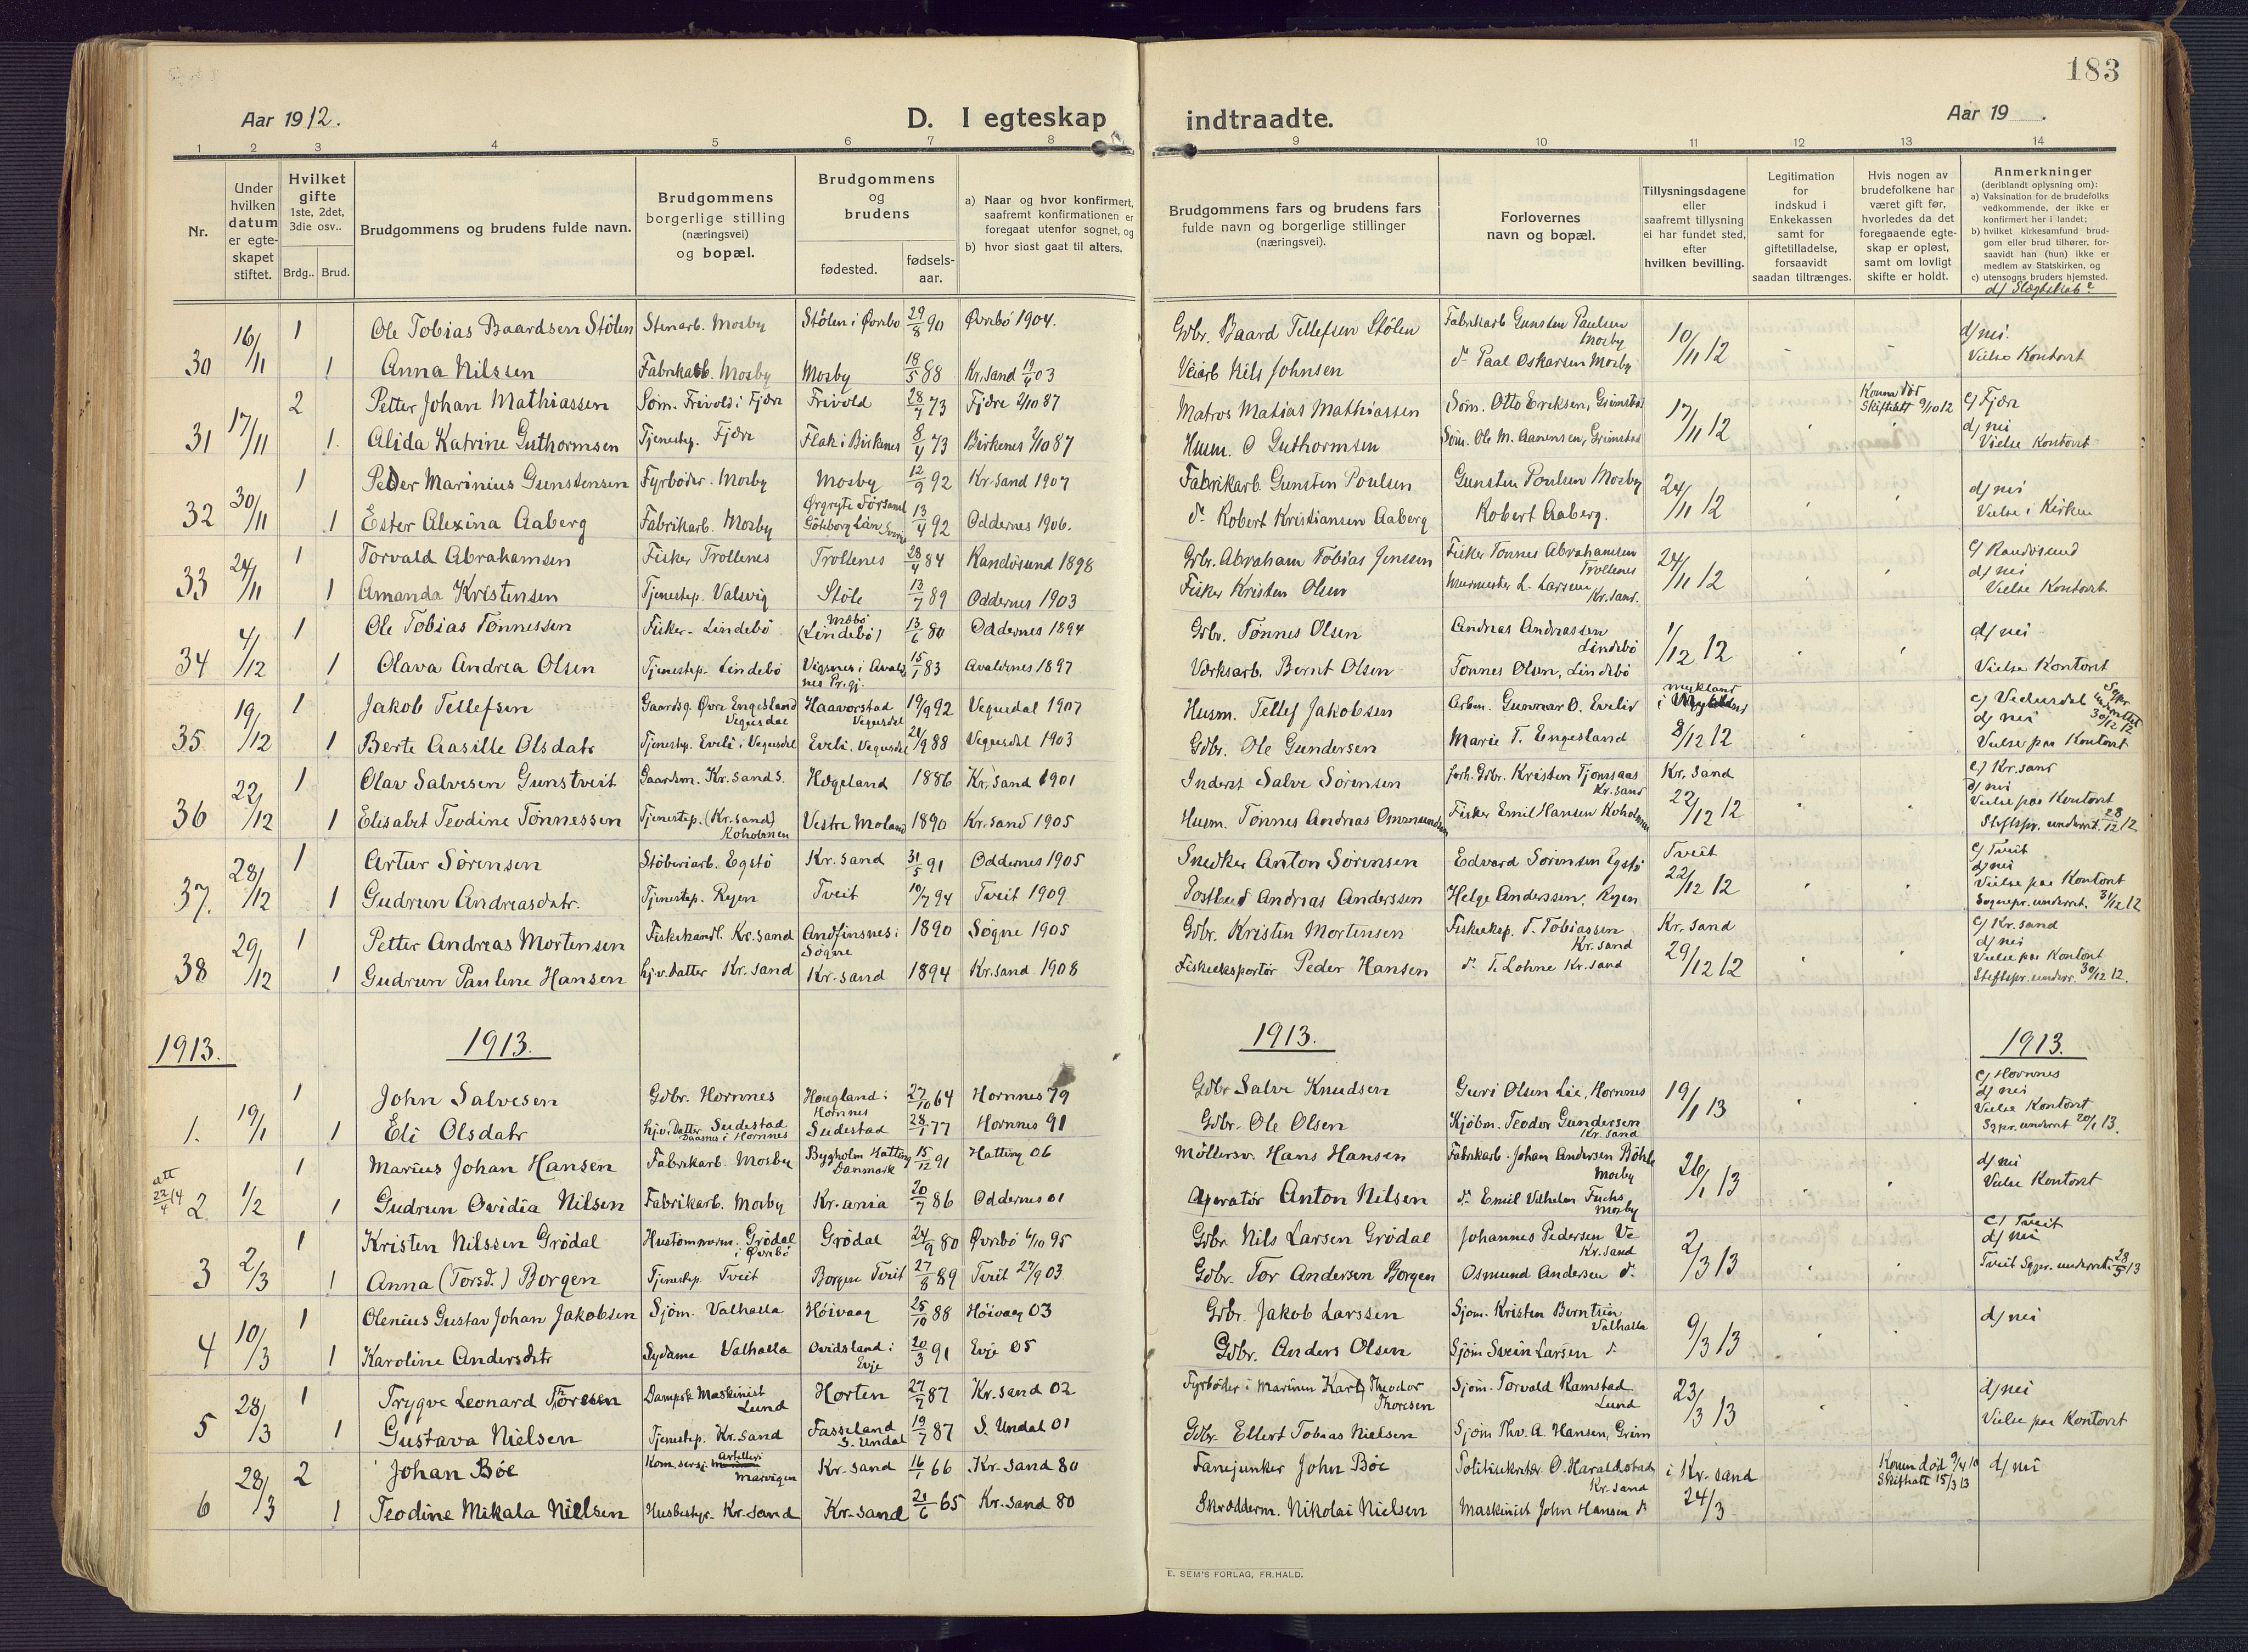 183
Aar 1912.
D. I egteskap indtraadte.
Aar 19 .
1 2 3 4 5 6 7 8 9 10 11 12 13 14
Nr.
Under hvilken datum er egteskapet stiftet.
Hvilket gifte 1ste, 2det, 3die osv..
Brdg.. Brud.
Brudgommens og brudens fulde navn.
Brudgommens borgerlige stilling (næringsvei) og bopæl.
Brudgommens og brudens
fødested.
fødsels-aar.
a) Naar og hvor konfirmert, saafremt konfirmationen er foregaat utenfor sognet, og
b) hvor sidst gaat til alters.
Brudgommens fars og brudens fars fulde navn og borgerlige stillinger (næringsvei).
Forlovernes navn og bopæl.
Tillysningsdagene eller saafremt tillysning ei har fundet sted, efter hvilken bevilling.
Legitimation for indskud i Enkekassen samt for giftetilladelse, forsaavidt saadan tiltrænges.
Hvis nogen av brudefolkene har været gift før, hvorledes da det foregaaende egteskap er opløst, samt om lovligt skifte er holdt.
Anmerkninger (deriblandt oplysning om):
a) Vaksination for de brudefolks vedkommende, der ikke er konfirmert her i landet;
b) hvilket kirkesamfund brudgom eller brud tilhører, forsaavidt han (hun) ikke er medlem av Statskirken, og
c) utensogns bruders hjemsted.
d) Slægtskab?
30 16/11 1 Ole Tobias Baardsen Stölen Stenarb. Mosby Stölen i Øvrebö 29/8 90 Øvrebö 1904. Gdbr. Baard Tellefsen Stölen Fabrikarb Gunsten Paulsen Mosby 10/11 12 d/ nei.
1 Anna Nilssen Fabrikarb. Mosby Mosby 18/5 88 Kr.sand 19/4 03 Veiarb Nils Johnsen do Paal Oskarsen Mosby Vielse Kontoret
31 17/11 2 Petter Johan Mathiassen Søm. Frivold i Fjære Frivold 28/4 73 Fjære 2/10 87 Matros Matias Mathiassen Søm. Otto Eriksen, Grimstad 17/11 12 Konen död Skifteatt 9/10 12 c/ Fjære
1. Alida Katrine Guthormsen Tjenestep. Fjære Flak i Birkenes 8/4 73 Birkenes 2/10 87 Husm. O Guthormsen Søm. Ole M. Aanensen, Grimstad d/ nei Vielse Kontoret
32 30/11 1 Peder Marinius Gunstensen Fyrböder. Mosby Mosby 12/9 92 Kr-sand 1907 Fabrikarb. Gunsten Poulsen Gunsten Poulsen Mosby 24/11 12 d/ nei
1 Ester Alexina Aaberg Fabrikarb. Mosby Örgryte Församl Göteborg Län 13/4 92 Oddernes 1906. do Robert Kristiansen Aaberg Robert Aaberg. Vielse i Kirken
33 24/11 1 Torvald Abrahamsen Fisker Trollenes Trollenes 28/4 84 Randösund 1898 Gdbr. Abraham Tobias Jenssen Fisker Tönnes Abrahamsen Trollenes 24/11 12 c/ Randösund d/ nei
1 Amanda Kristensen Tjenestep. Valsvig Stöle 13/7 89 Oddernes 1903 Fisker Kristen Olsen Murmester L. Larsen Kr.sand. Vielse Kontoret.
34 4/12 1 Ole Tobias Tönnessen Fisker - Lindebö Mæbö (Lindebö) 13/6 80 Oddernes 1894 Gdbr. Tönnes Olsen Andreas Andreassen Lindebö 1/12 12 d/ nei
1 Olava Andrea Olsen Tjenestep. Lindebö Vigsnes i Avaldsnes Pr.gj. 15/1 83 Avaldsnes 1897 Værksarb. Bernt Olsen Tönnes Olsen, Lindebö Vielse Kontoret
35 19/12 1 Jakob Tellefsen Gaardsg. Øvre Engesland Vegusdal Haavorstad Vegusdal 19/9 92 Vegusdal 1907 Husm. Tellef Jakobsen Arbm. Gunnar O. Evelid i Mykland c/ Vegusdal Sgpr underrettet 30/12 12
1 Berte Aasille Olsdatr Tjenestep. Eveli i Vegusdal Eveli, Vegusdal 21/9 88 Vegusdal 1903 Gdbr. Ole Gundersen Marie T. Engesland 8/12 12 d/ nei Vielse paa Kontoret
36 22/12 1 Olav Salvesen Gunstveit Gaardsm. Kr.sand S. Hægeland 1886 Kr.sand 1901 Inderst Salve Sörensen forh. Gdbr. Kristen Tjomsaas Kr.sand Kr.sand c/ Kr.sand d/ nei
1 Elisabet Teodine Tönnessen Tjenestep. (Kr.sand) Koholmen Vestre Moland 1890 Kr.sand 1905 Husm. Tönnes Andreas Ommundsen Fisker Emil Hansen Koholmen 22/12 12 Vielse paa Kontoret Stiftspr. underret. 28/12 12
37. 28/12 1 Artur Sörensen Stöberiarb. Egstö Kr.sand 31/5 91 Oddernes 1905 Snedker Anton Sörensen Edvard Sörensen Egstö Tveit c/ Tveit d/ nei
1 Gudrun Andreasdatr. Tjenestep. Ryen Tveit 10/7 94 Tveit 1909 Postbud Andreas Anderssen Helge Anderssen, Ryen 22/12 12 Vielse paa Kontoret Sognepr. underret. 31/12 12
38 29/12 1 Petter Andreas Mortensen Fiskehandl. Kr.sand Andfinsnes i Søgne 1890 Søgne 1905 Gdbr. Kristen Mortensen Fiskeeksp. T. Tobiassen Kr.sand Kr.sand c/ Kr.sand d/ nei
1 Gudrun Pauline Hansen hj.v. Datter Kr.sand Kr-sand 1894 Kr.sand 1908 Fiskeeksportör Peder Hansen do T. Lohne Kr.sand 29/12 12 Vielse paa Kontoret Stiftspr. underr. 30/12 12.
1913. 1913. 1913. 1913.
1. 19/1 1 John Salvesen Gdbr. Hornnes Hougland i Hornnes 27/10 64 Hornnes 79 Gdbr Salve Knudsen Guri Olsen Lie, Hornnes 19/1 13 c/ Hornnes d/ nei
1 Eli Olsdatr hj.v. Datter Sudestad Daasnes i Hornnes Sudestad 28/1 77 Hornnes 91 Gdbr. Ole Olsen Kjöbm. Teodor Gundersen Kr.sand Vielse Kontoret Sgpr. underret 20/1 13.
att 22/4 14 2 1/2 1 Marius Johan Hansen Fabrikarb Mosby Bygholm Hatting Danmark 15/12 91 Hatting 06 Möllersv. Hans Hansen Fabrikarb. Johan Andersen Böhle Mosby 26/1 13 d/ nei
1 Gudrun Ovidia Nilsen Fabrikarb. Mosby Kr.ania 20/7 86 Oddernes 01 Operatör Anton Nilsen do Emil Vilhelm Fuchs Mosby Vielse Kontoret
3 2/3 1 Kristen Nilssen Grödal Hustömmerm. Grödal i Øvrebö Grödal 24/9 80 Øvrebö 6/10 95 Gdbr. Nils Larsen Grödal Johannes Pedersen Ve Kr.sand 2/3 13 c/ Tveit d/ nei
1 Anna (Torsd.) Borgen Tjenestep. Tveit Borgen Tveit 27/8 89 Tveit 27/9 03 Gdbr. Tor Andersen Borgen Osmund Andersen do Tveit Sgpr. underret. 28/5 13
4 10/3 1 Olenius Gustav Johan Jakobsen Sjöm. Valhalla Höivaag 25/10 88 Höivaag 03 Gdbr. Jakob Larssen Sjöm. Kristen Berntsen Valhalla 9/3 13 d/ nei
1 Karoline Andersdtr Sydame Valhalla Ovidsland i Evje 20/3 91 Evje 05 Gdbr. Anders Olsen Sjöm Svein Larsen do
5 28/3 1 Trygve Leonard Thoresen Dampsk. Maskinist Lund Horten 27/7 87 Kr.sand 02 Fyrböder i Marinen Karl Theodor Thoresen Sjöm. Torvald Ramstad Lund 23/3 13 d/ nei
1 Gustava Nielsen Tjenestep. Kr.sand Fasseland S. Undal 19/7 87 S. Undal 01 Gdbr. Ellert Tobias Nielsen Sjöm Thv. A. Hansen, Grim Vielse paa Kontoret
6 28/3 2 Johan Böe Kom.sersj. Artilleri Marvigen Kr-sand 16/1 66 Kr.sand 80 Fanejunker John Böe Politisekretær O. Haraldstad Kr.sand i Kr.sand Konen död 9/4 10 Skifteatt 15/3 13 d/ nei
1 Teodine Mikala Nielsen Husbestyr. Kr.sand Kr-sand 21/6 65 Kr-sand 80 Skrædderm. Nikolai Nielsen Maskinist John Hansen do 24/3
E. SEM'S FORLAG, FR.HALD.